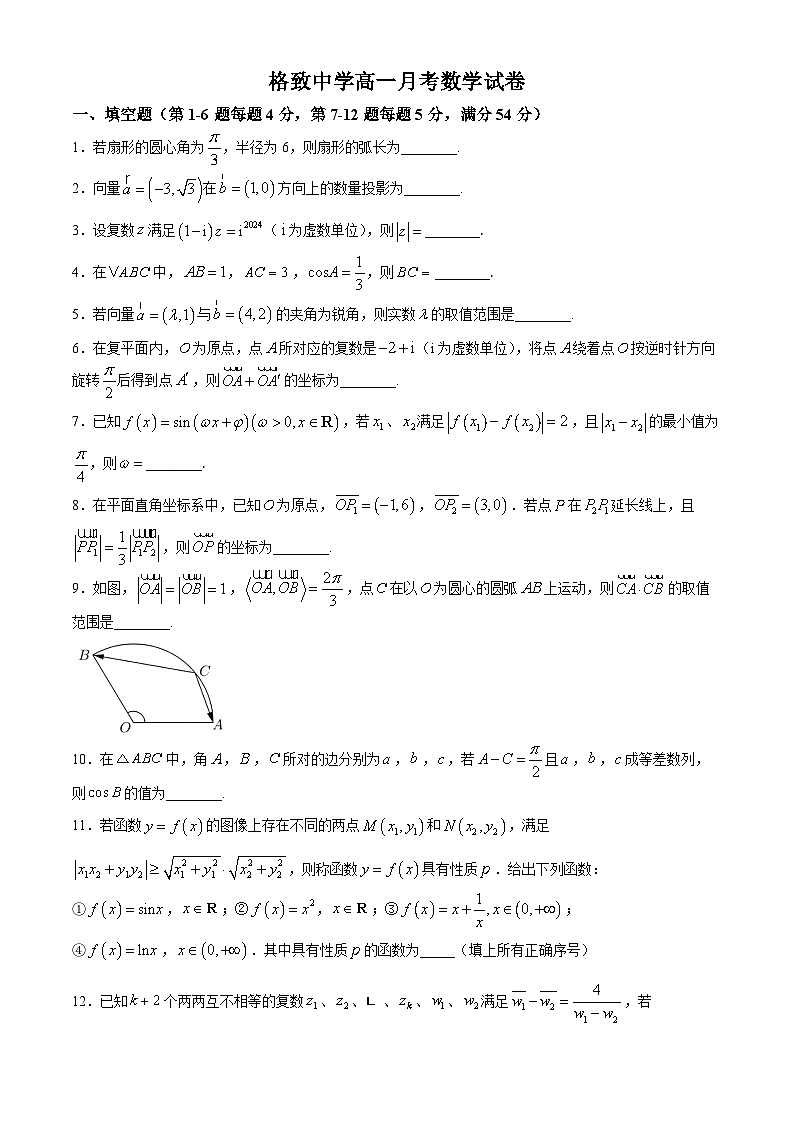 格致中学高一月考数学试卷
一、填空题（第1-6题每题4分，第7-12题每题5分，满分54分）
1．若扇形的圆心角为π/3，半径为6，则扇形的弧长为________．
2．向量a=(−3, √3)在b=(1,0)方向上的数量投影为________．
3．设复数z满足(1−i)z=i^2024（i为虚数单位），则|z|=________．
4．在VABC中，AB=1，AC=3，cosA=1/3，则BC=________．
5．若向量a=(λ,1)与b=(4,2)的夹角为锐角，则实数λ的取值范围是________．
6．在复平面内，O为原点，点A所对应的复数是−2+i（i为虚数单位），将点A绕着点O按逆时针方向
旋转π/2后得到点A′，则OA+OA′的坐标为________．
7．已知f(x)=sin(ωx+φ)(ω>0,x∈R)，若x₁、x₂满足|f(x₁)−f(x₂)|=2，且|x₁−x₂|的最小值为
π/4，则ω=________．
8．在平面直角坐标系中，已知O为原点，OP₁=(−1,6)，OP₂=(3,0)．若点P在P₂P₁延长线上，且
|PP₁|=1/3|P₁P₂|，则OP的坐标为________．
9．如图，|OA|=|OB|=1，⟨OA,OB⟩=2π/3，点C在以O为圆心的圆弧AB上运动，则CA·CB的取值
范围是________．
B
C
O
A
10．在△ABC中，角A，B，C所对的边分别为a，b，c，若A−C=π/2且a，b，c成等差数列，
则cosB的值为________．
11．若函数y=f(x)的图像上存在不同的两点M(x₁,y₁)和N(x₂,y₂)，满足
|x₁x₂+y₁y₂|≥√(x₁²+y₁²)·√(x₂²+y₂²)，则称函数y=f(x)具有性质p．给出下列函数：
①f(x)=sinx，x∈R；②f(x)=x²，x∈R；③f(x)=x+1/x,x∈(0,+∞)；
④f(x)=lnx，x∈(0,+∞)．其中具有性质p的函数为_____（填上所有正确序号）
12．已知k+2个两两互不相等的复数z₁、z₂、L、zₖ、w₁、w₂满足w̅₁−w̅₂=4/(w₁−w₂)，若